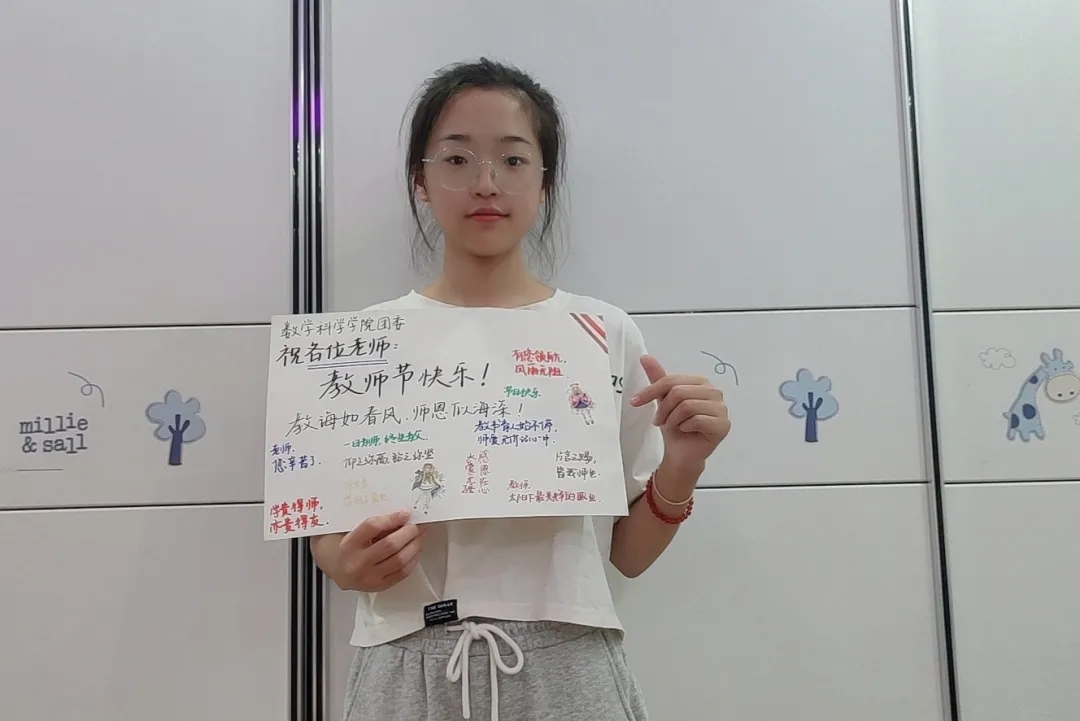 数学科学学院团委
祝各位老师：
教师节快乐！
教诲如春风，师恩似海深！
有您领航，
风雨无阻
节日快乐
教书育人始不悔，
老师，
您辛苦了．
一日为师，终生为父
仰之弥高，钻之弥坚
大爱
感恩
片言之赐，
皆我师也．
老师，
太阳下最光辉的职业．
学贵得师，
亦贵得友．
millie
& sall